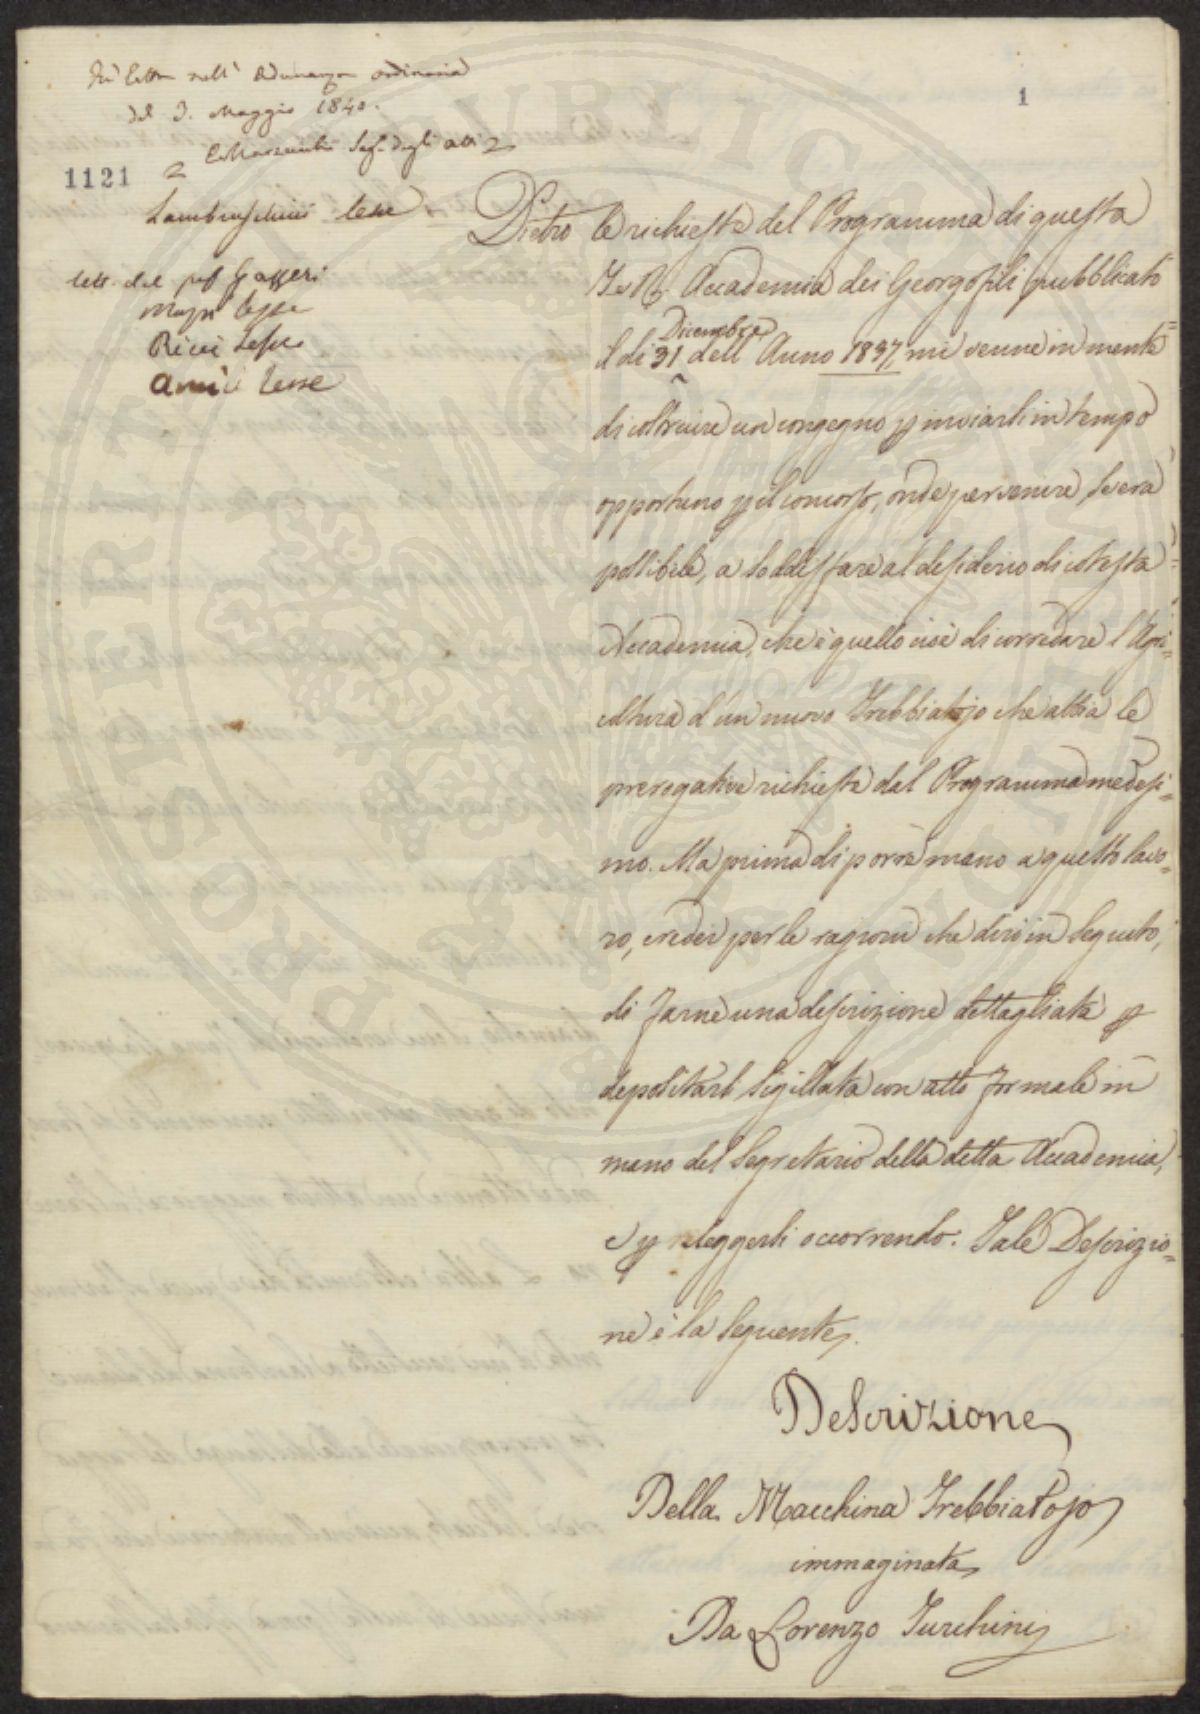 Fù letta nell' Adunanza ordinaria
del 3. Maggio 1840.
Segr. degli atti
1121
1
Lambruschini lesse
lett. dal prof Gazzeri
lesse
Ricci lesse
Amici lesse
Dietro le richieste del Programma di questa
I. e R. Accademia dei Georgofili pubblicato
Dicembre
il di 31 dell' Anno 1837, mi venne in mente
di costruire un congegno p inviarli in tempo
opportuno p il concorso, onde pervenire, se era
possibile, a soddisfare al desiderio di cotesta
Accademia, che è quello cioè di corredare l'Agri=
coltura d'un nuovo Trebbiatojo che abbia le
prerogative richieste dal Programma medesi=
mo. Ma prima di porre mano a questo lavo=
ro, credei per le ragioni che dirò in seguito,
di farne una descrizione dettagliata p
depositarli sigillata con atto formale in
mano del Segretario della detta Accademia,
e p rileggerli occorrendo. Tale Descrizio=
ne è la seguente.
Descrizione
Della Macchina Trebbiatojo
immaginata
Da Lorenzo Turchini
PROSPERITATI PUBLICAE